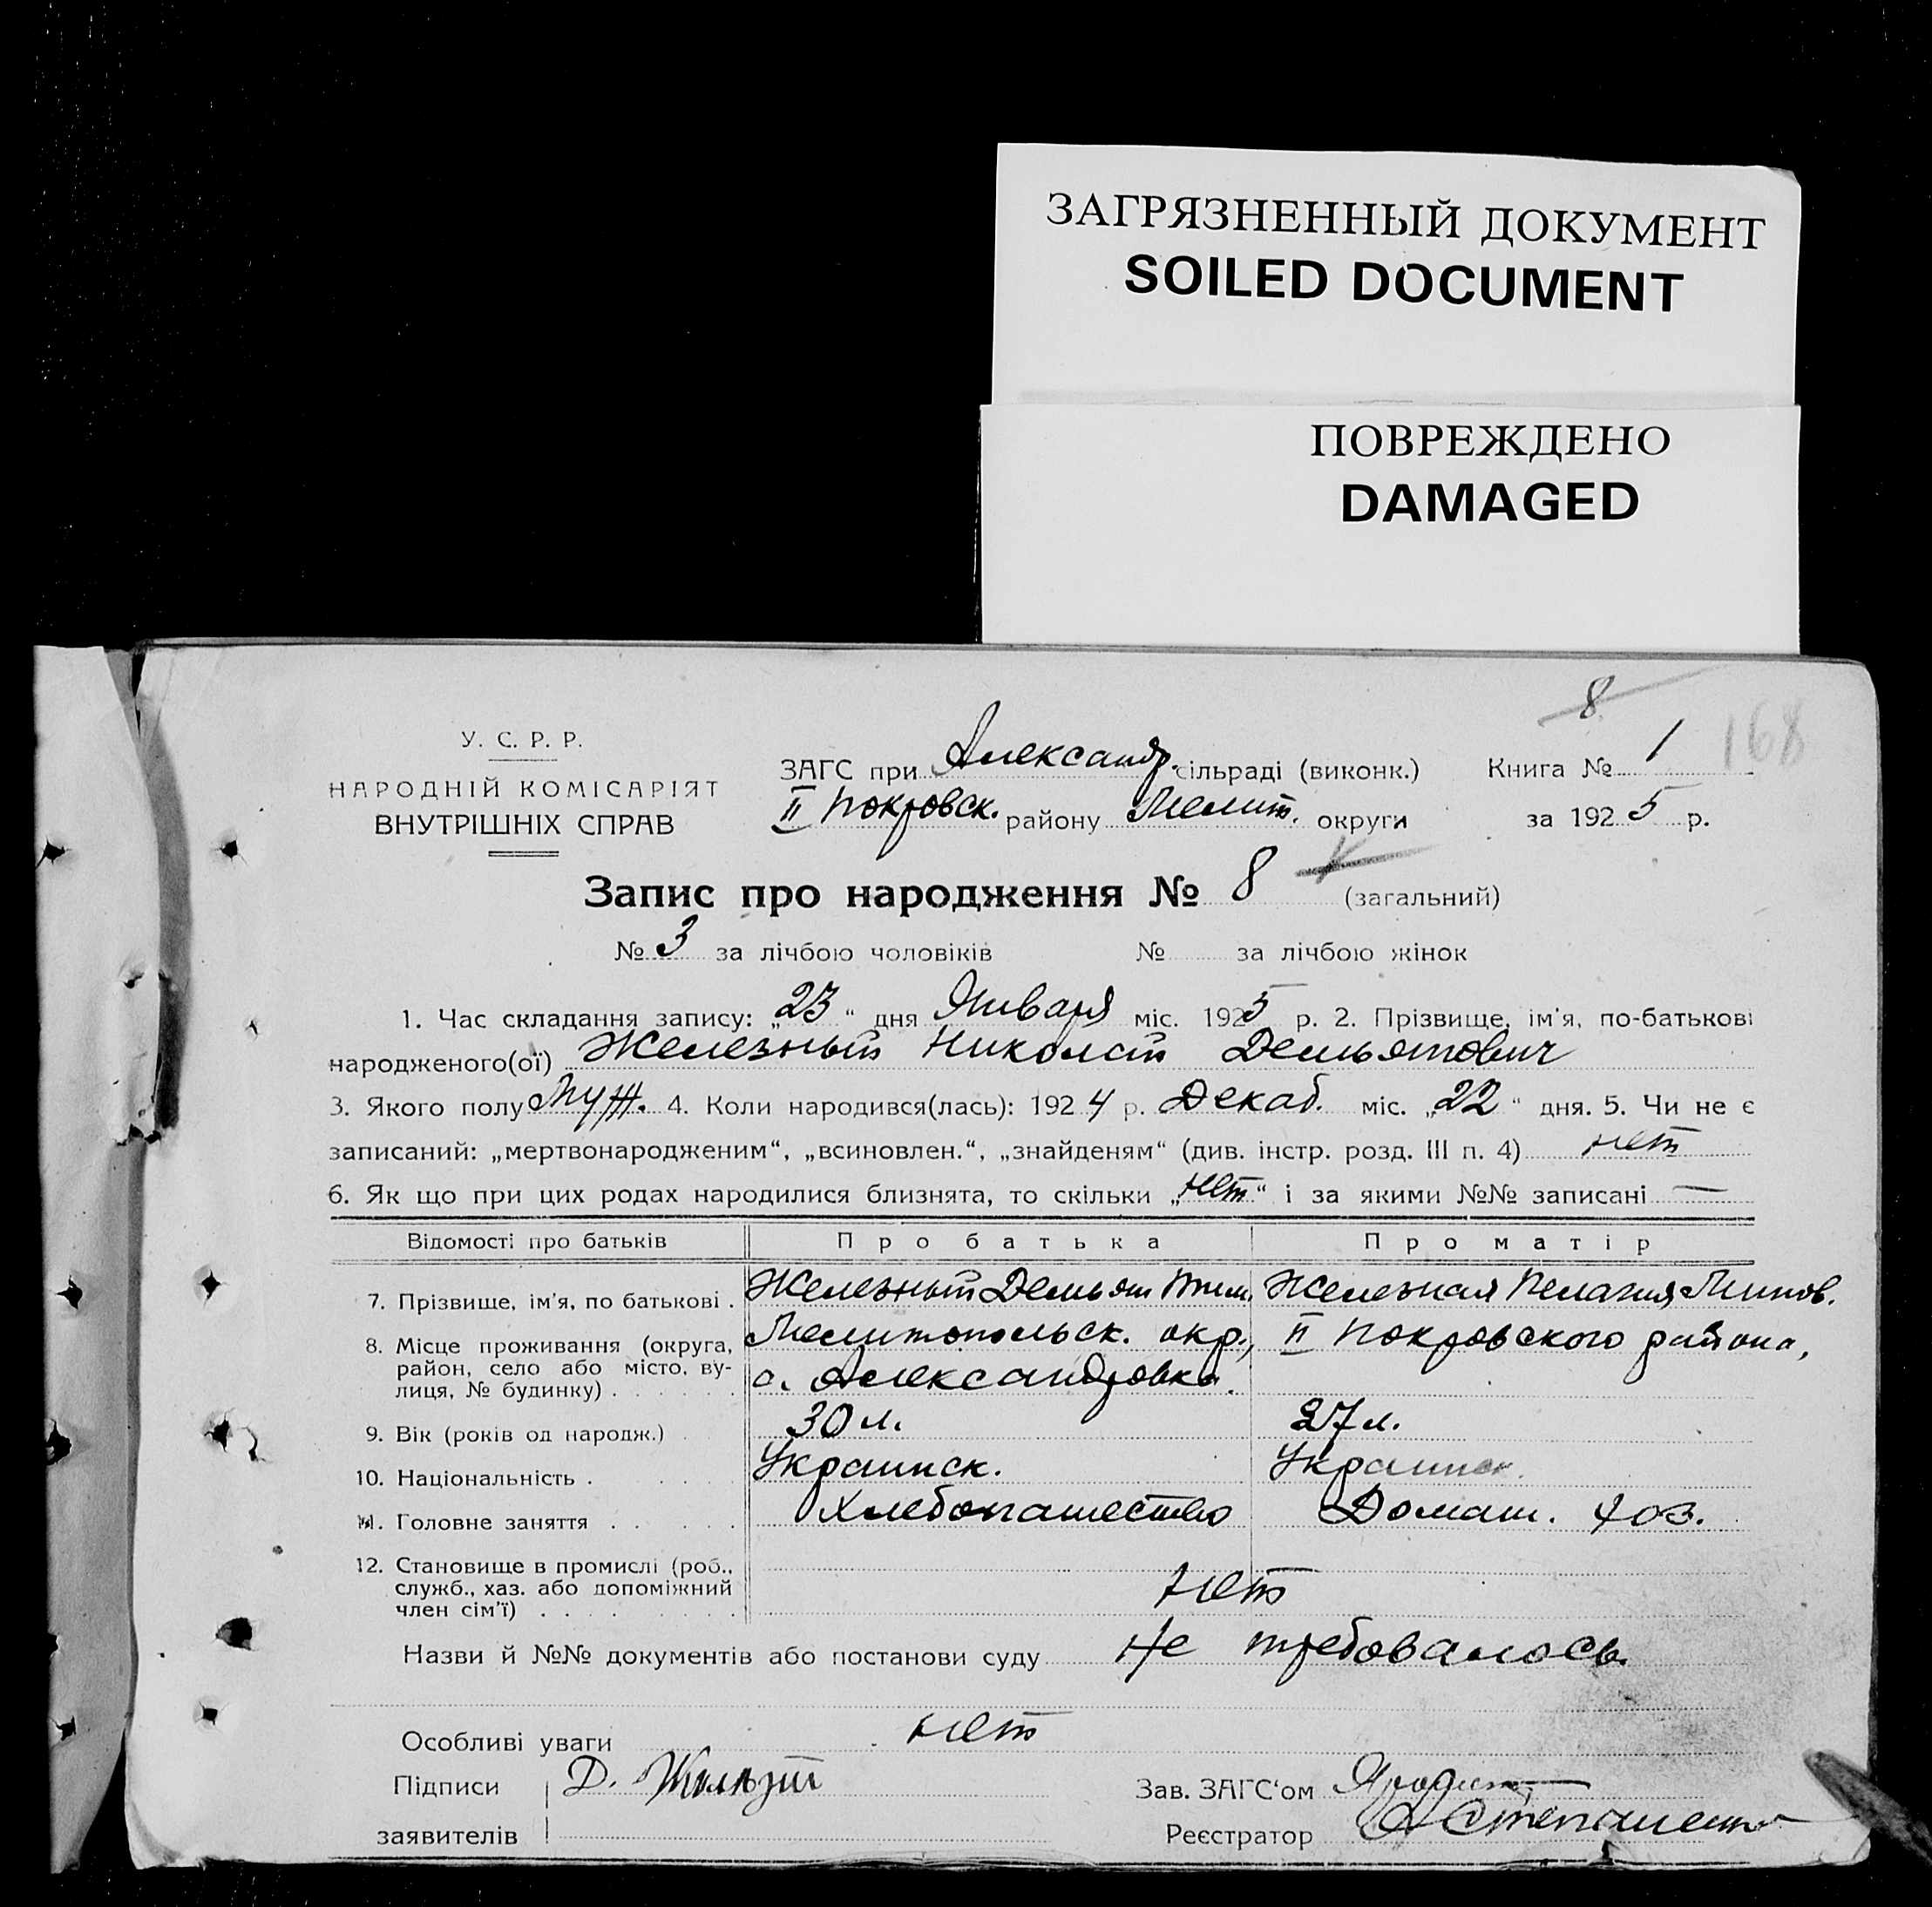 ЗАГРЯЗНЕННЫЙ ДОКУМЕНТ
SOILED DOCUMENT
ПОВРЕЖДЕНО
DAMAGED
8
168
У. С. Р. Р.
НАРОДНІЙ КОМІСАРІЯТ
ВНУТРІШНІХ СПРАВ
ЗАГС при Александр. сільраді (виконк.) Книга № 1
II Покровск. району Мелит. округи за 1925 р.
Запис про народження № 8 (загальний)
№ 3 за лічбою чоловіків № за лічбою жінок
1. Час складання запису: „23“ дня Января міс. 1925 р. 2. Прізвище, ім'я, по-батькові
народженого(ої) Железный Николай Демьянович
3. Якого полу Муж. 4. Коли народився(лась): 1924 р. Декаб. міс. „22“ дня. 5. Чи не є
записаний: „мертвонародженим“, „всиновлен.“, „знайденям“ (див. інстр. розд. III п. 4) нет
6. Як що при цих родах народилися близнята, то скільки „нет“ і за якими №№ записані —
Відомості про батьків Про батька Про матір
7. Прізвище, ім'я, по батькові . Железный Демьян Железная Пелагия
8. Місце проживання (округа, Мелитопольск. окр., II Покровского района,
район, село або місто, ву- с. Александровка.
лиця, № будинку) . . . . . .
9. Вік (років од народж.) . 30 л. 27 л.
10. Національність . . . . . Украинск. Украинск.
11. Головне заняття . . . . . Хлебопашество Домаш. хоз.
12. Становище в промислі (роб.,
служб., хаз. або допоміжний нет
член сім'ї) . . . . . . . .
Назви й №№ документів або постанови суду Не требовалось.
Особливі уваги нет
Підписи Д. Зав. ЗАГС'ом
заявителів Реєстратор Степаненко